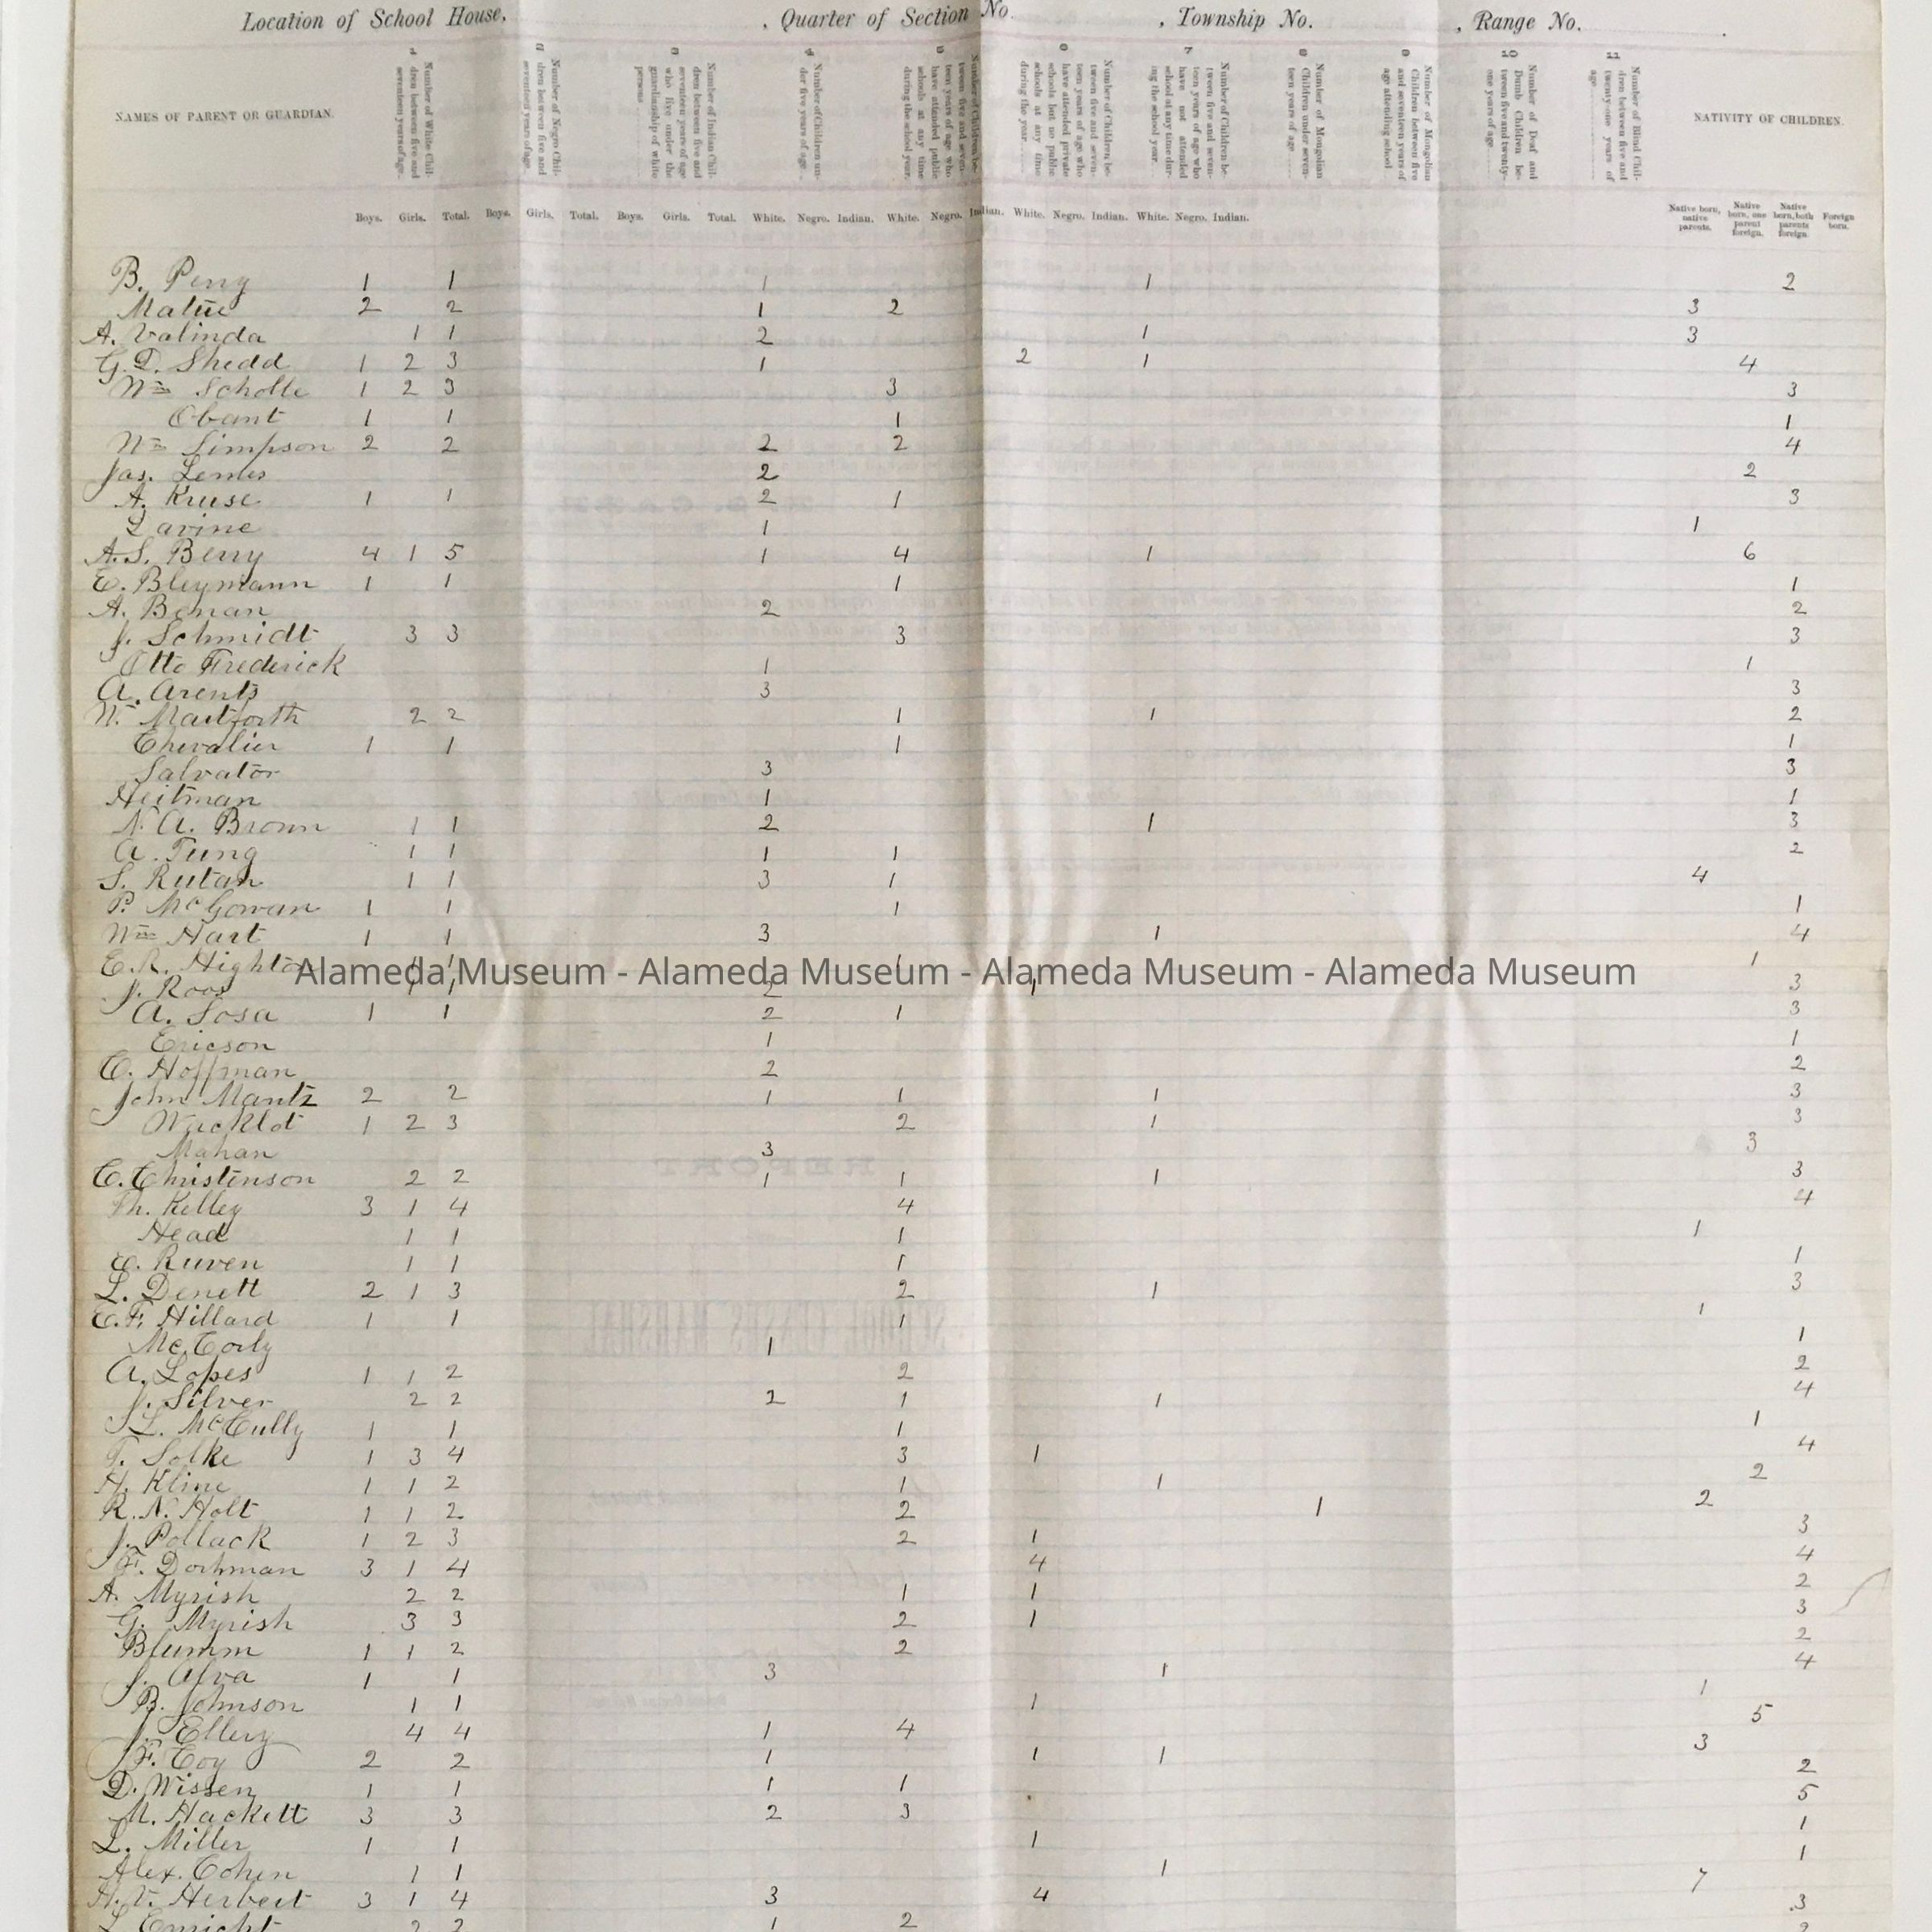 Location of School House, , Quarter of Section No. , Township No. , Range No. .
NAMES OF PARENT OR GUARDIAN.
1 Number of White Children between five and seventeen years of age.
2 Number of Negro Children between five and seventeen years of age.
3 Number of Indian Children between five and seventeen years of age who live under the guardianship of white persons
4 Number of Children under five years of age
5 Number of Children between five and seventeen years of age who have attended public schools at any time during the school year.
6 Number of Children between five and seventeen years of age who have attended private schools but no public schools at any time during the year
7 Number of Children between five and seventeen years of age who have not attended school at any time during the school year.
8 Number of Mongolian Children under seventeen years of age
9 Number of Mongolian Children between five and seventeen years of age attending school
10 Number of Deaf and Dumb Children between five and twenty-one years of age
11 Number of Blind Children between five and twenty-one years of age
NATIVITY OF CHILDREN.
Boys. Girls. Total. Boys. Girls. Total. Boys. Girls. Total. White. Negro. Indian. White. Negro. Indian. White. Negro. Indian. White. Negro. Indian. Native born, native parents. Native born, one parent foreign. Native born, both parents foreign. Foreign born.
B. 1 1 1 1 2
2 2 1 2 3
A. Valinda 1 1 2 1 3
G. D. Shedd 1 2 3 1 2 1 4
Wm Scholte 1 2 3 3 3
Obant 1 1 1 1
Wm Simpson 2 2 2 2 4
Jas. Lemes 2 2
A. Kruse 1 1 2 1 3
Larine 1 1
A. S. Berry 4 1 5 1 4 1 6
E. Bleymann 1 1 1 1
A. Beman 2 2
J. Schmidt 3 3 3 3
Otto Frederick 1 1
A. Arents 3 3
W. 2 2 1 1 2
Chevalier 1 1 1 1
Salvator 3 3
Heitman 1 1
N. A. Brown 1 1 2 1 3
A. Tung 1 1 1 1 2
S. Rutan 1 1 3 1 4
P. McGowan 1 1 1 1
Wm Hart 1 1 3 1 4
E. R. Highton 1 1 1 1
Alameda Museum - Alameda Museum - Alameda Museum - Alameda Museum
J. Roos 1 1 2 1 3
A. Sosa 1 1 2 1 3
Ericson 1 1
C. Hoffman 2 2
John Mantz 2 2 1 1 1 3
1 2 3 2 1 3
Mahan 3 3
C. Christenson 2 2 1 1 1 3
Th. Kelley 3 1 4 4 4
Head 1 1 1 1
E. Ruven 1 1 1 1
L. Denett 2 1 3 2 1 3
E. F. Hillard 1 1 1 1
1 1
A. Lopes 1 1 2 2 2
J. Silver 2 2 2 1 1 4
L. McCully 1 1 1 1
T. Solke 1 3 4 3 1 4
H. Kline 1 1 2 1 1 2
R. N. Holt 1 1 2 2 1 2
J. Pollack 1 2 3 2 1 3
F. Dorhman 3 1 4 4 4
A. Myrish 2 2 1 1 2
G. Myrish 3 3 2 1 3
Blumm 1 1 2 2 2
J. Alva 1 1 3 1 4
B. Johnson 1 1 1 1
J. Ellery 4 4 1 4 5
F. Coy 2 2 1 1 1 3
D. Wissen 1 1 1 1 2
M. Hackett 3 3 2 3 5
L. Miller 1 1 1 1
Alex. Cohen 1 1 1 1
H. V. Herbert 3 1 4 3 4 7
L. 2 2 1 2 3